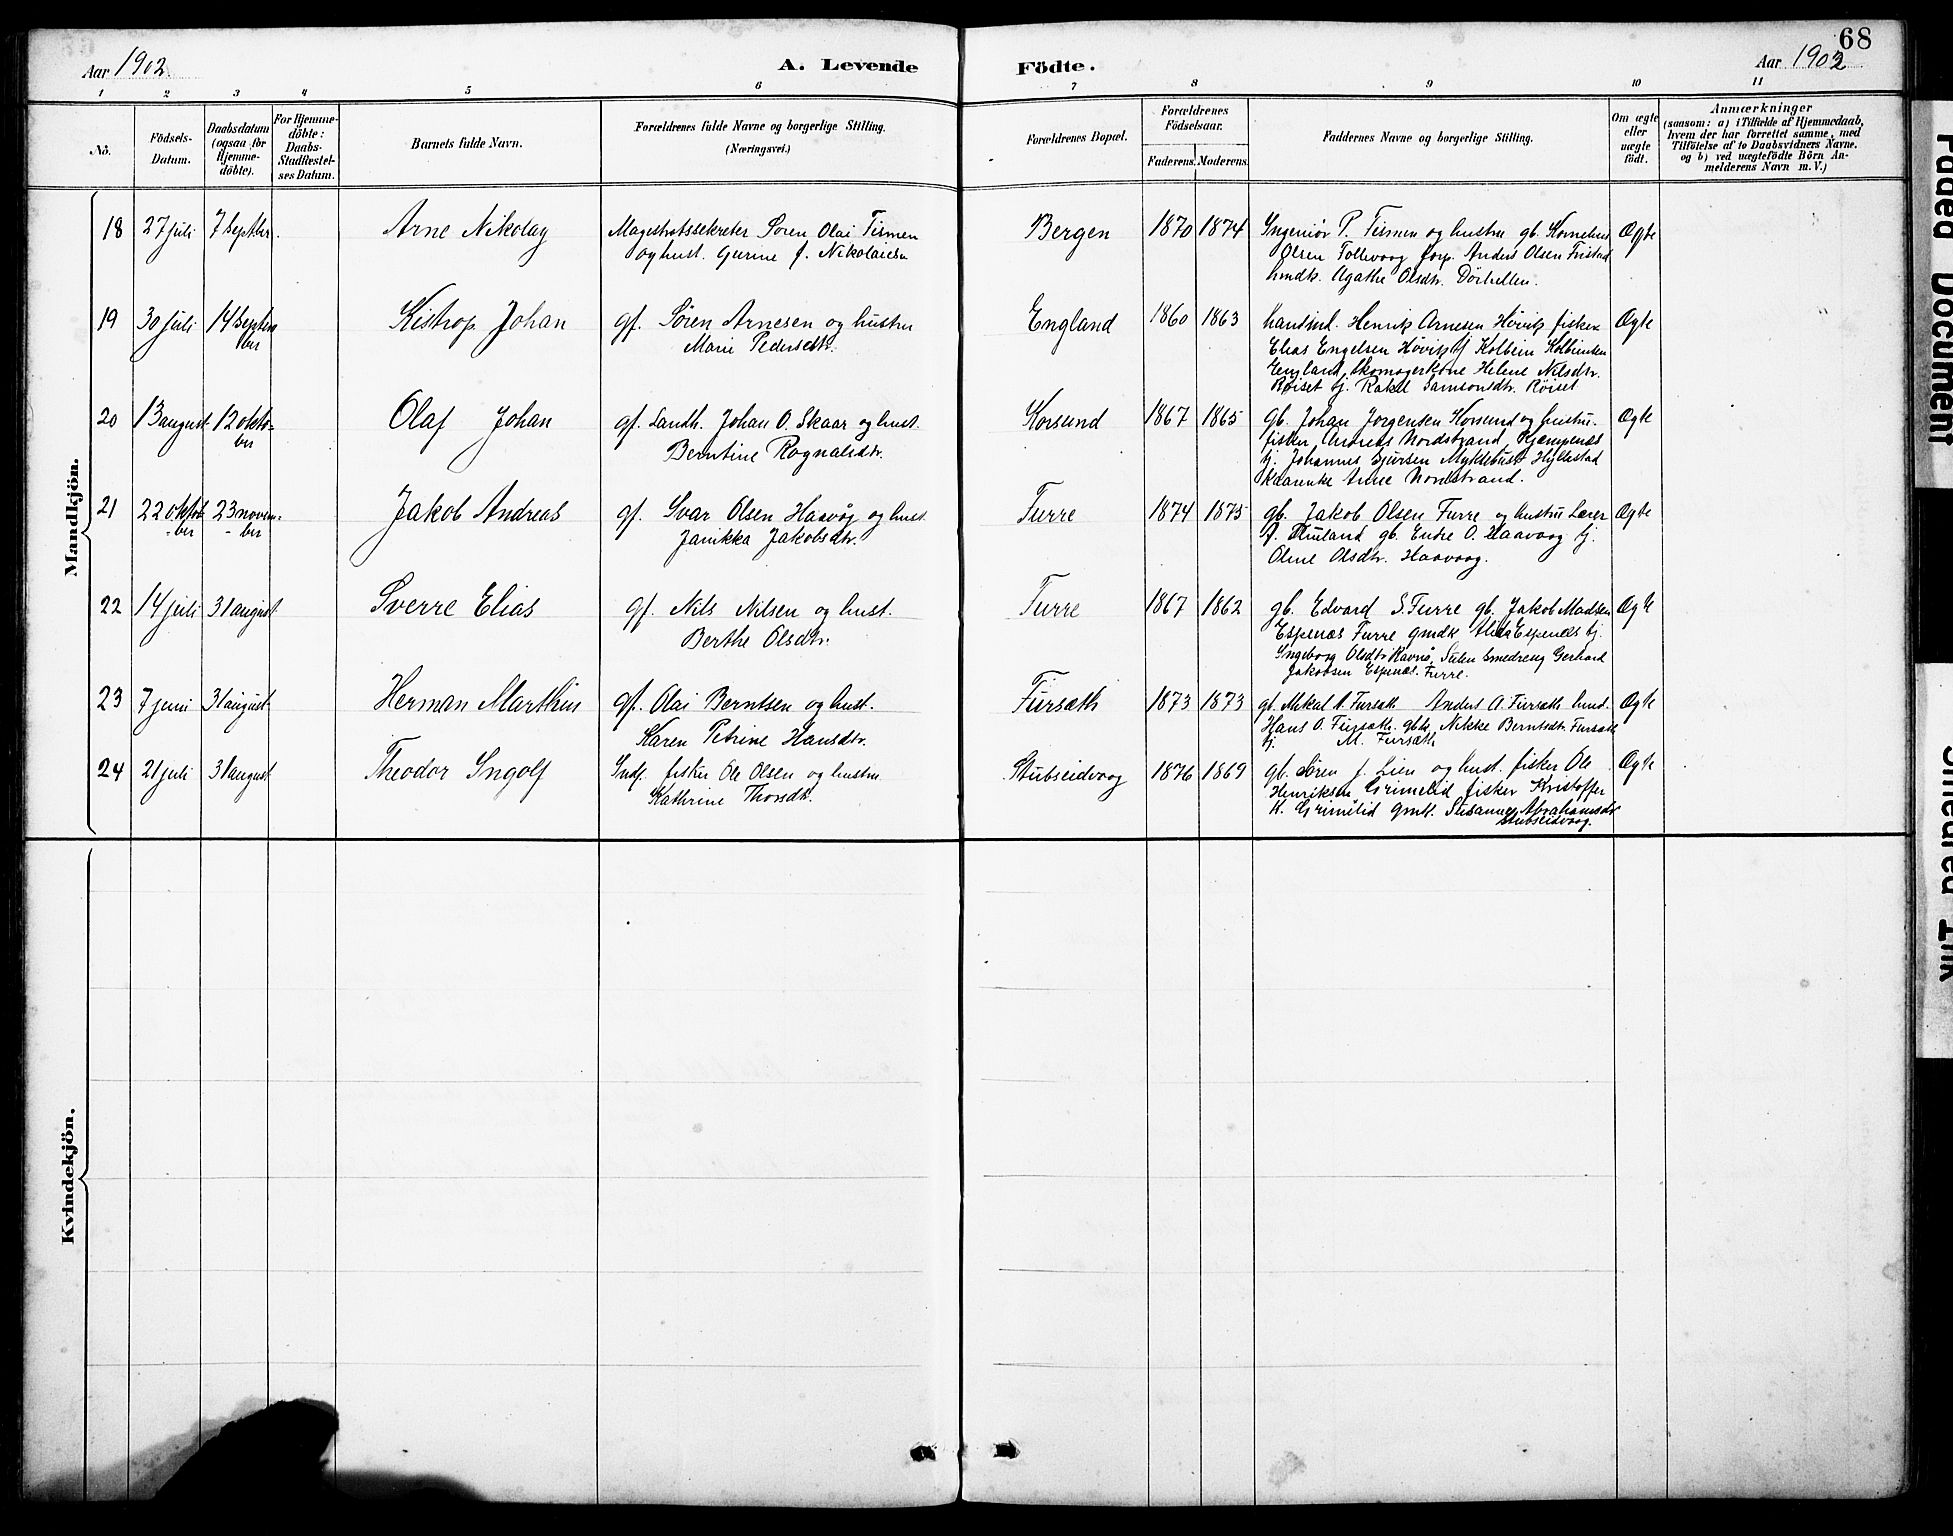 68
Aar 1902.
A. Levende Födte.
Aar 1902
1 2 3 4 5 6 7 8 9 10 11
No.
Födsels-
Datum.
Daabsdatum
(ogsaa for
Hjemme-
döbte).
For Hjemme-
döbte:
Daabs-
Stadfæstel-
ses Datum.
Barnets fulde Navn.
Forældrenes fulde Navne og borgerlige Stilling.
(Næringsvei.)
Forældrenes Bopæl.
Forældrenes
Födselsaar.
Faderens. Moderens.
Faddernes Navne og borgerlige Stilling.
Om ægte
eller
uægte
födt.
Anmærkninger
(saasom: a) i Tilfælde af Hjemmedaab,
hvem der har forrettet samme, med
Tilföielse af to Daabsvidners Navne.
og b) ved uægtefödte Börn An-
melderens Navn m. V.)
Mandkjön.
18 27 juli 7 Septbr. Arne Nikolay
Magistratssekretær Søren Olai
og hust. Gurine f. Nikolaisen
Bergen 1870 1874
Ingeniør P. og hustru gb. Kornelius
Olsen Anders Olsen
Agathe Olsdtr.
Ægte
19 30 juli 14 Septem
ber
Kistrop Johan
gf. Søren Arnesen og hustru
Marie Pedersdtr.
England 1860 1863
Henrik Arnesen Høvik fisker
Elias Engelsen Høvik tj Kolbein
England, Skomagerkone Helene Nilsdtr.
Røiset tj. Rakel Samsonsdtr. Røiset
Ægte
20 13 august 12 okto-
ber
Olaf Johan
gf. Landh. Johan O. Skaar og hust.
Berntine Rognaldsdtr.
Korsund 1867 1865
gb. Johan Jørgensen Korsund og hustru.
fisker Andreas Nordstrand,
tj. Johannes Myklebust Hyllestad
Anne Nordstrand.
Ægte
21 22 oktob
-ber
23 novem-
-ber
Jakob Andreas
gf. Ivar Olsen Haavåg og hust
Janikka Jakobsdtr.
Furre 1874 1875
gb. Jakob Olsen Furre og hustru Lærer
gb. Endre O. Haavaag tj.
Oline Olsdtr. Haavaag.
Ægte
22 14 juli 31 august Sverre Elias
gf. Nils Nilsen og hust.
Berthe Olsdtr.
Furre 1867 1862
gb. Edvard S. Furre gb. Jakob Madsen
Espenæs Furre gmdk Espenæs tj.
Ingeborg Olsdtr Smedreng Gerhard
Jakobsen Espenæs. Furre.
Ægte
23 7 juni 31 august Herman Marthin
gf. Olai Berntsen og hust.
Karen Petrine Hansdtr.
Fursæth 1873 1873
gb. Mikal A. Fursæth Anders A. Fursæth
Hans O. Fursæth. Nikke Berntsdtr. Fursæth
tj. M. Fursæth
Ægte
24 21 juli 31 august Theodor Ingolf
Indf. fisker Ole Olsen og hustru
Kathrine Thorsdtr.
Stubseidvaag 1876 1869
gb. Søren J. Lien og hust. fisker Ole
Henriksen Grimelid fisker Kristoffer
K. Grimelid gmk. Susanne Abrahamsdtr
Stubseidvaag.
Ægte
Kvindekjön.
Faded Document
Smeared Ink